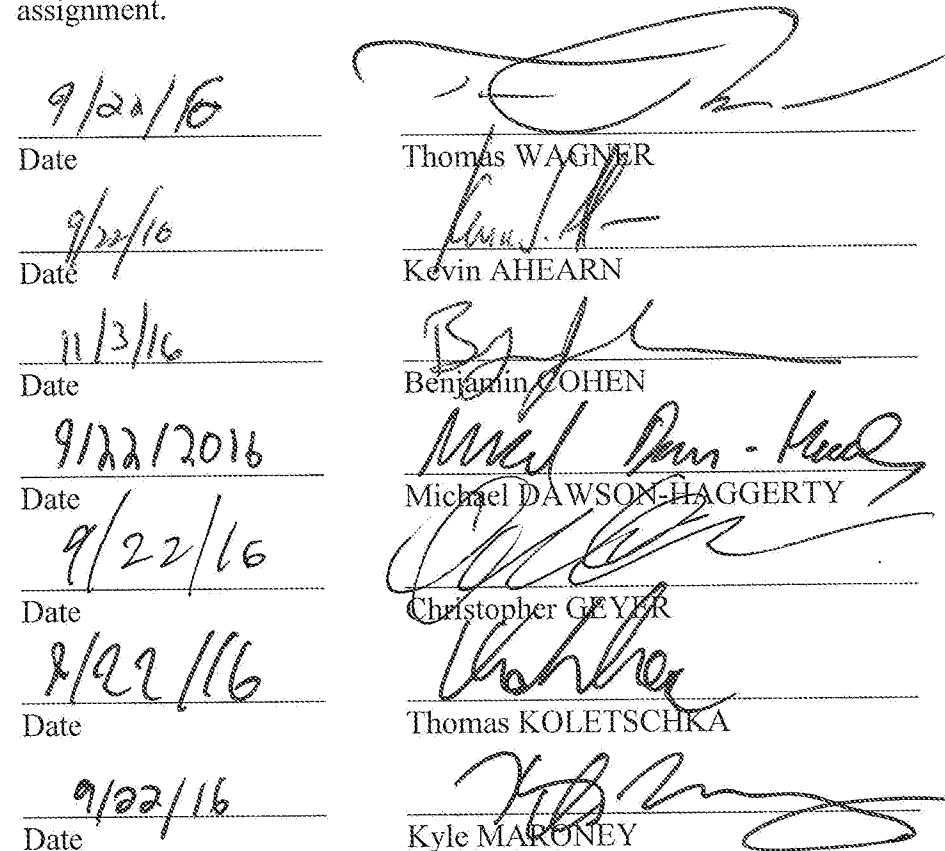 assignment.
9/22/16
Date Thomas WAGNER
9/22/16
Date Kevin AHEARN
11/3/16
Date Benjamin COHEN
9/22/2016
Date Michael DAWSON-HAGGERTY
9/22/16
Date Christopher GEYER
9/22/16
Date Thomas KOLETSCHKA
9/22/16
Date Kyle MARONEY